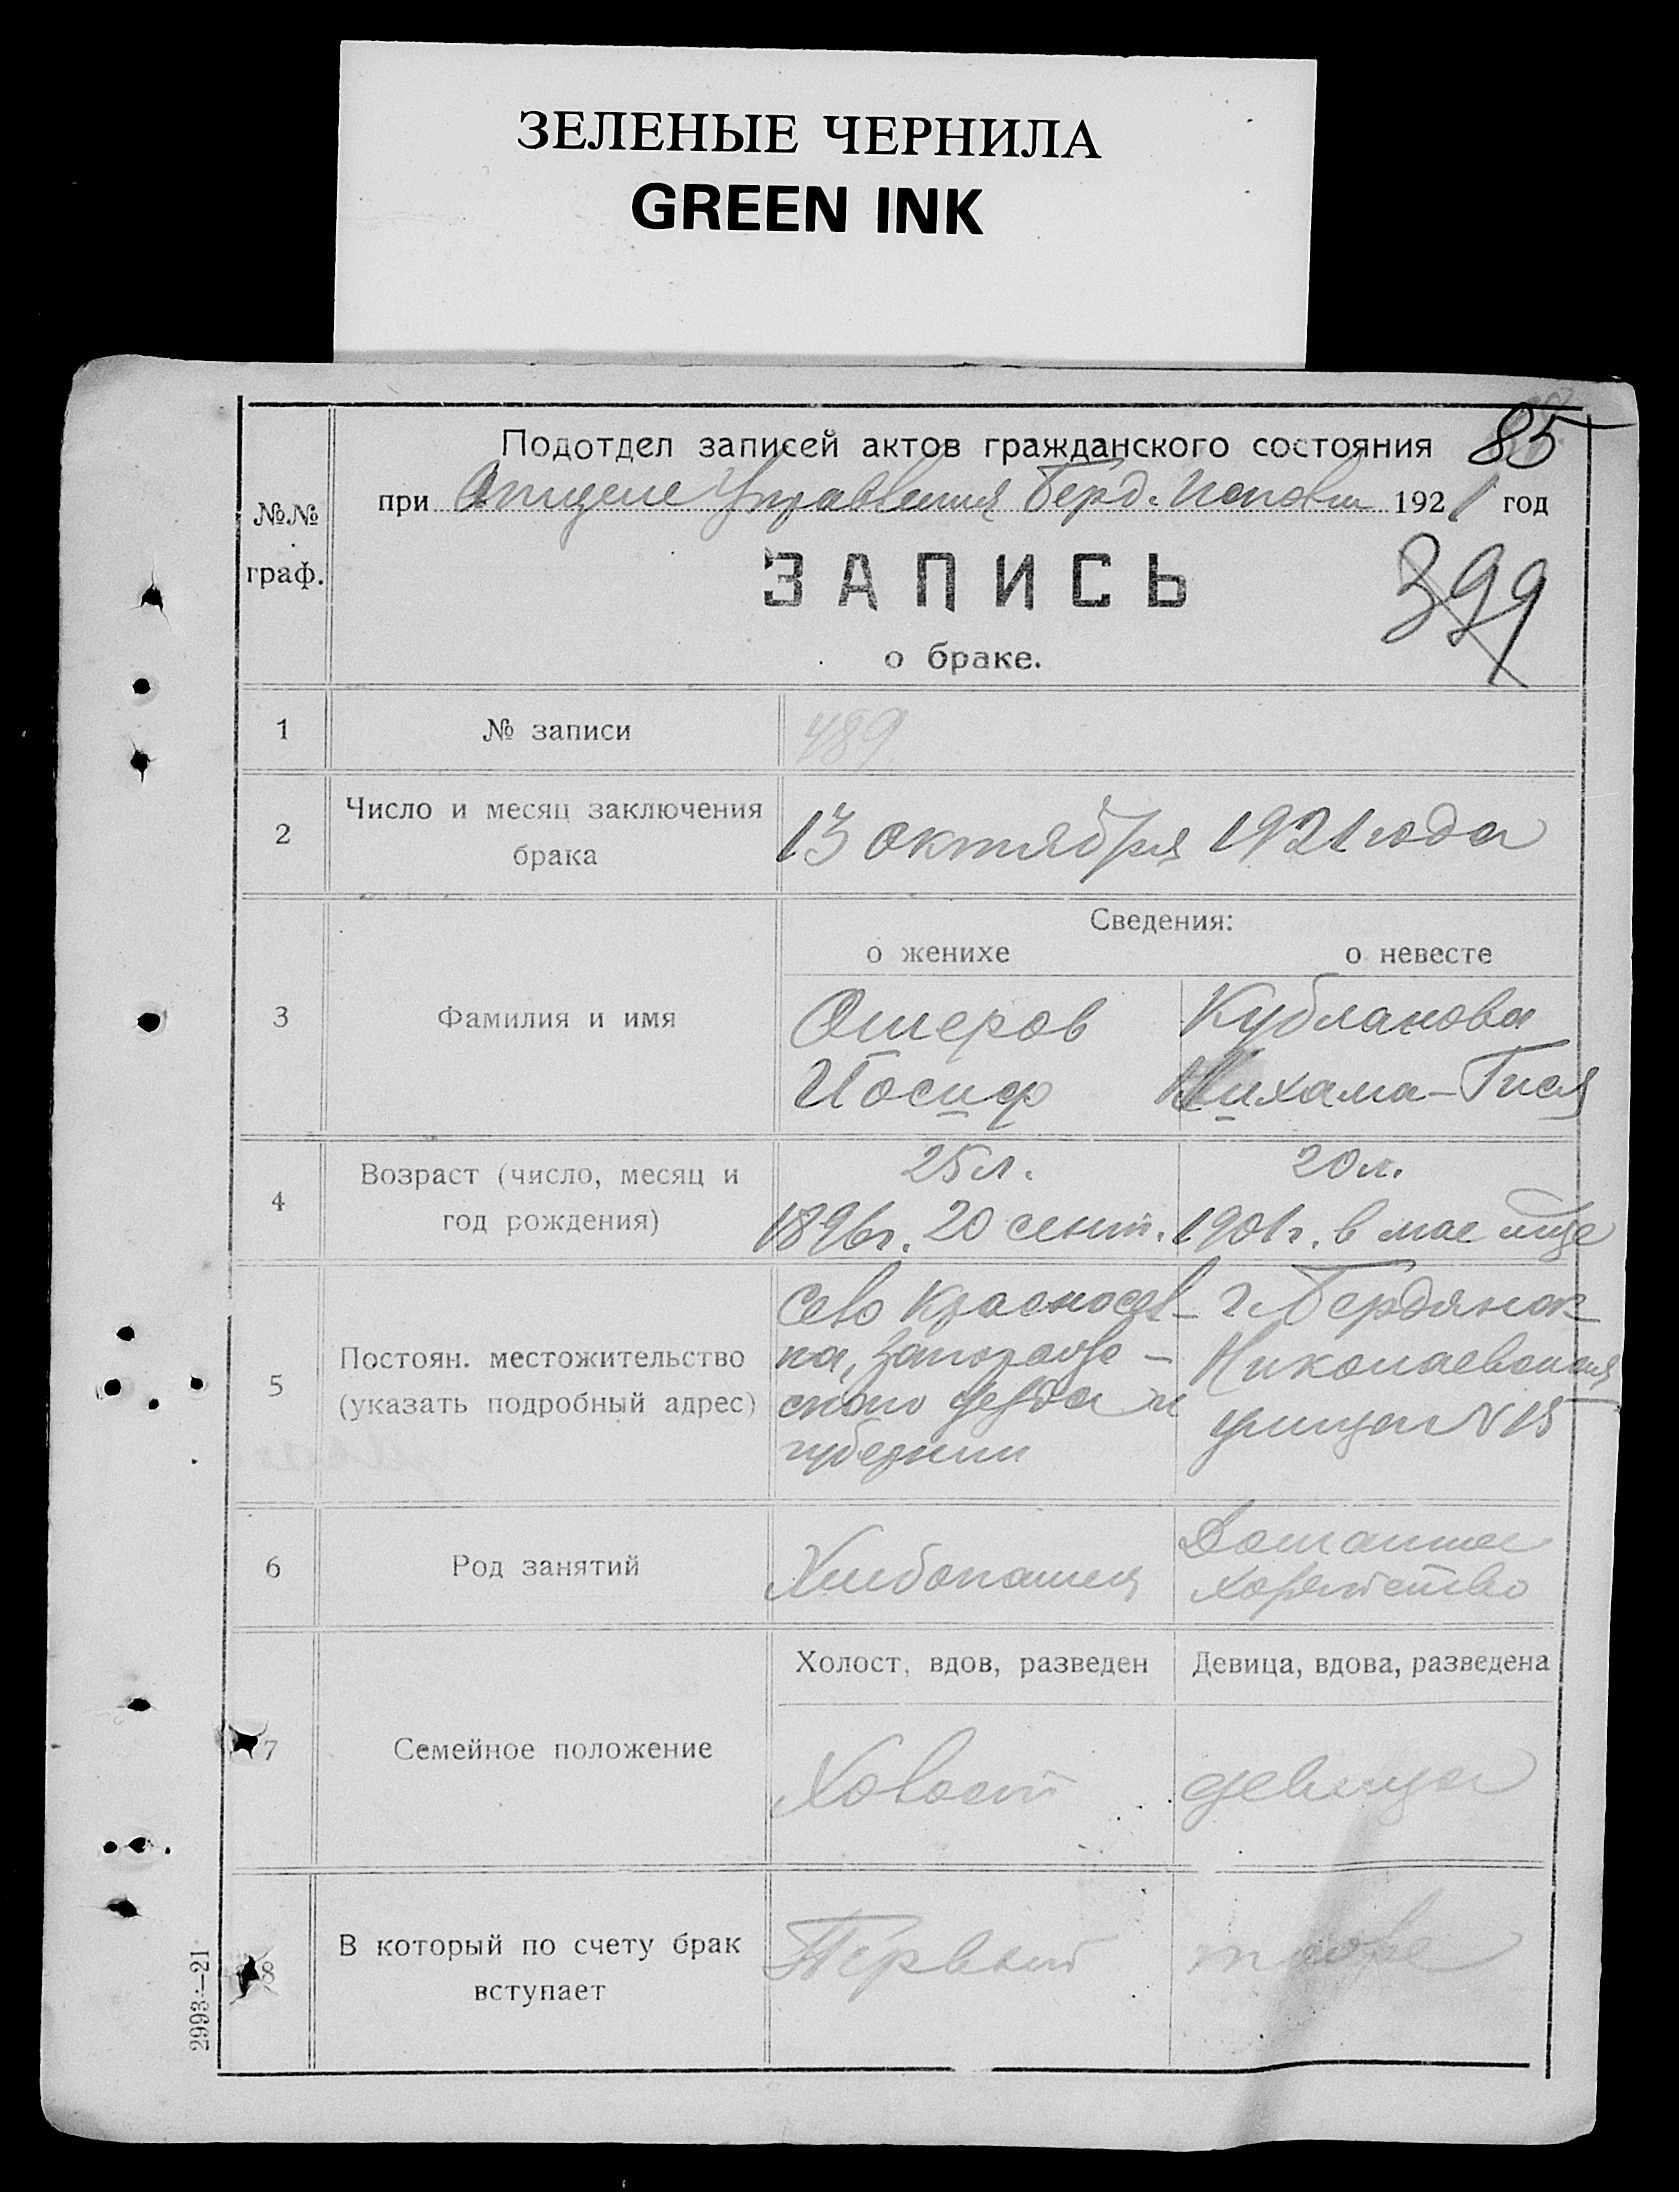 ЗЕЛЕНЫЕ ЧЕРНИЛА
GREEN INK
85
Подотдел записей актов гражданского состояния
№№ граф.
при Отделе Управления Берд. Исповк 1921 год
ЗАПИСЬ
399
о браке.
1 № записи 489
2 Число и месяц заключения брака 13 октября 1921 года
Сведения:
о женихе о невесте
3 Фамилия и имя
Ошеров Кубланова
Иосиф Нихама-Гися
4 Возраст (число, месяц и год рождения)
25 л. 20 л.
1896 г. 20 сент. 1901 г. в мае м-це
5 Постоян. местожительство (указать подробный адрес)
Село Красносел-
ка, Запорож-
ского уезда и
губернии
г. Бердянск
Николаевская
улица № 15
6 Род занятий
Хлебопашец
Домашнее
хозяйство
Холост, вдов, разведен Девица, вдова, разведена
7 Семейное положение
Холост девица
8 В который по счету брак вступает
Первый тоже
2993—21